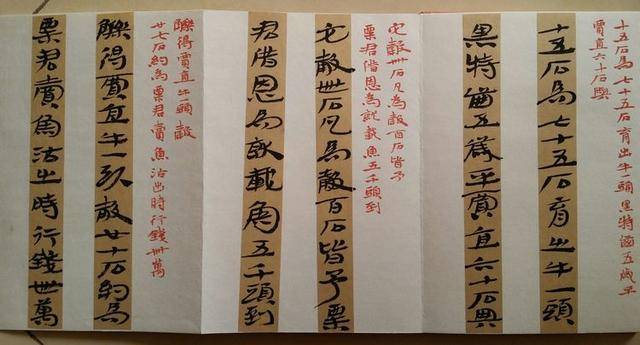 十五石為七十五石育出牛一頭黑特齒五歲平
賈直六十石與
十五石為七十五石育出牛一頭
黑特齒五歲平賈直六十石與
它穀卌石凡為穀百石皆予
粟君借恩為就載魚五千頭到
它穀卌石凡為穀百石皆予粟
君借恩為就載魚五千頭到
觻得賈直牛一頭穀
廿七石約為粟君賣魚沽出時行錢卌萬
觻得賈直牛一頭穀廿七石約為
粟君賣魚沽出時行錢卌萬